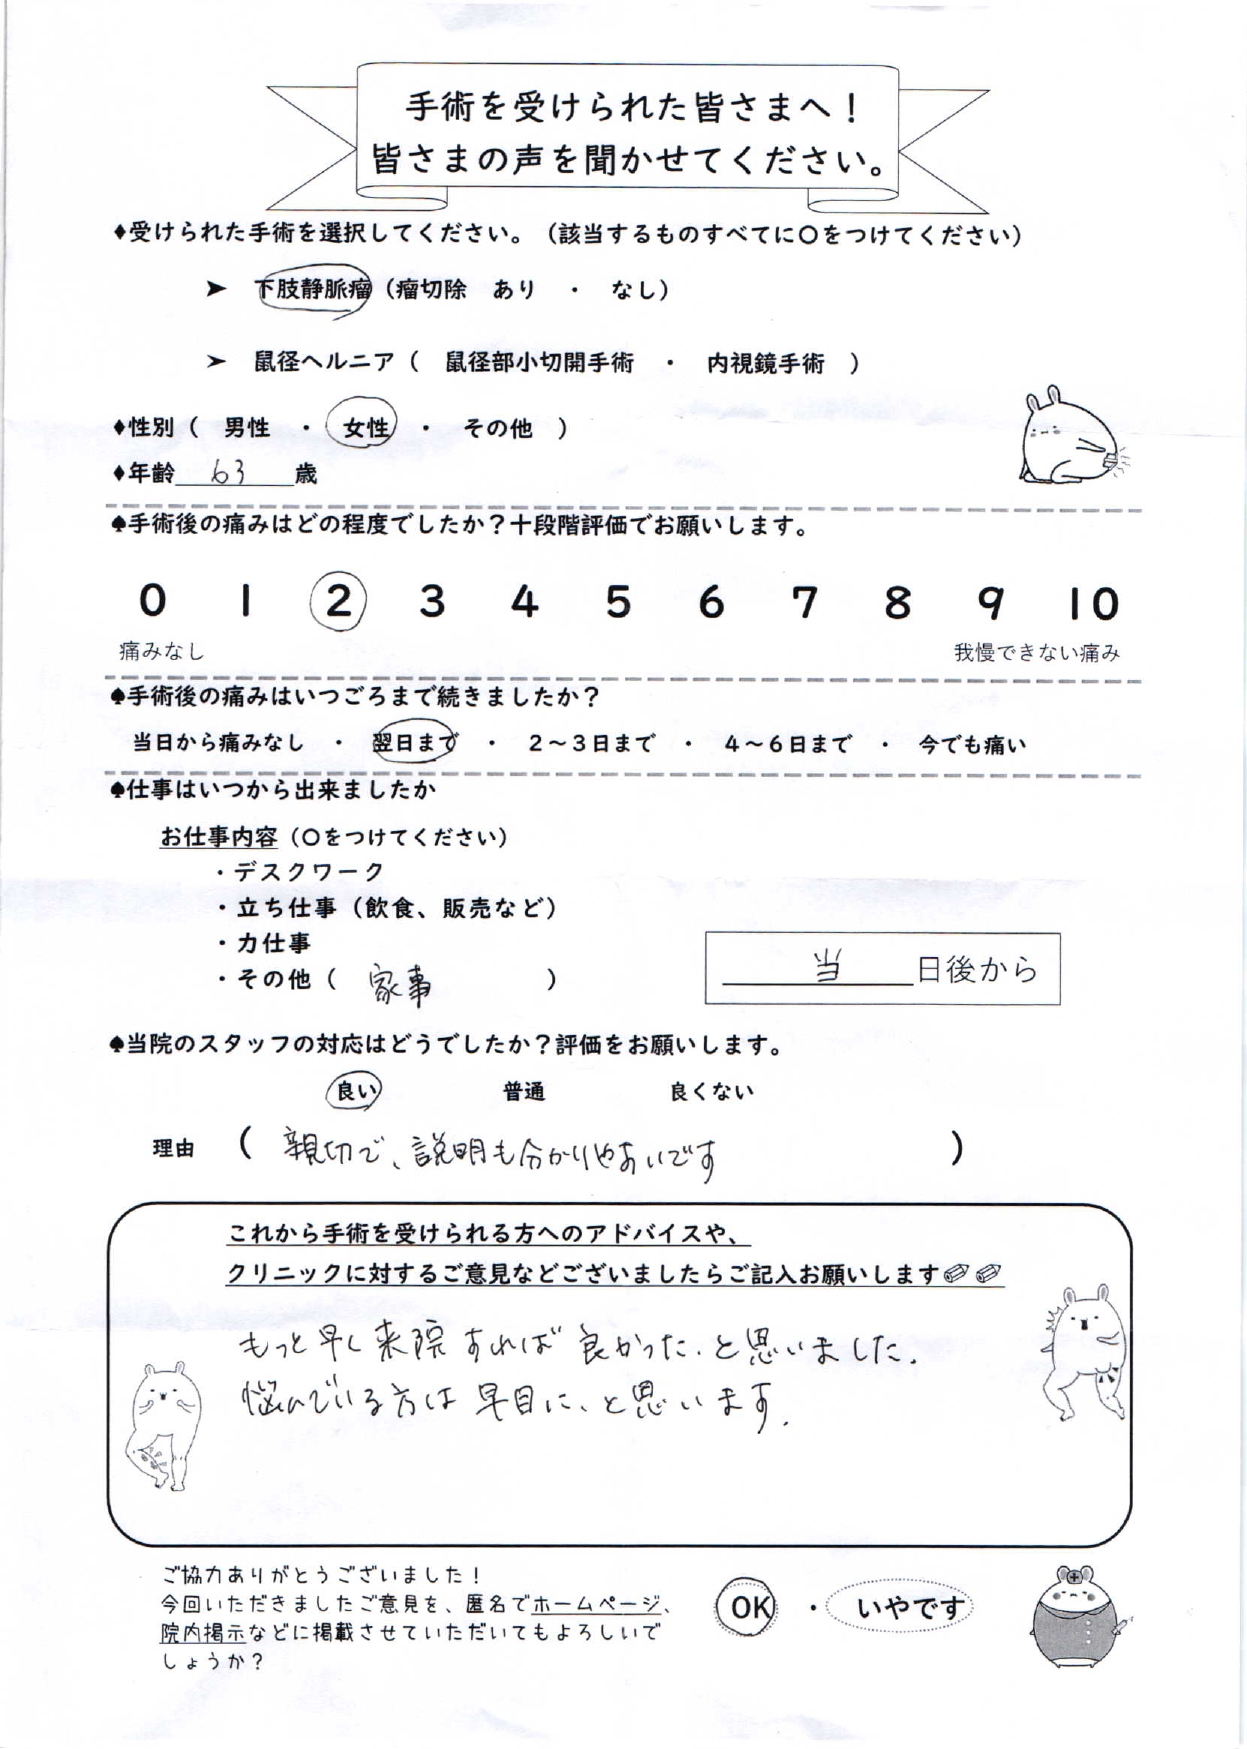 手術を受けられた皆さまへ！
皆さまの声を聞かせてください。
♦受けられた手術を選択してください。（該当するものすべてに〇をつけてください）
➤ 下肢静脈瘤（瘤切除 あり ・ なし）
➤ 鼠径ヘルニア（ 鼠径部小切開手術 ・ 内視鏡手術 ）
♦性別（ 男性 ・ 女性 ・ その他 ）
♦年齢 63 歳
♠手術後の痛みはどの程度でしたか？十段階評価でお願いします。
0 1 2 3 4 5 6 7 8 9 10
痛みなし 我慢できない痛み
♠手術後の痛みはいつごろまで続きましたか？
当日から痛みなし ・ 翌日まで ・ ２～３日まで ・ ４～６日まで ・ 今でも痛い
♠仕事はいつから出来ましたか
お仕事内容（〇をつけてください）
・デスクワーク
・立ち仕事（飲食、販売など）
・力仕事
・その他（ 家事 ）
当 日後から
♠当院のスタッフの対応はどうでしたか？評価をお願いします。
良い 普通 良くない
理由 （ 親切で、説明も分かりやすいです ）
これから手術を受けられる方へのアドバイスや、
クリニックに対するご意見などございましたらご記入お願いします
もっと早く来院すれば良かった、と思いました。
悩んでいる方は早目に、と思います。
ご協力ありがとうございました！
今回いただきましたご意見を、匿名でホームページ、
院内掲示などに掲載させていただいてもよろしいで
しょうか？
OK ・ いやです